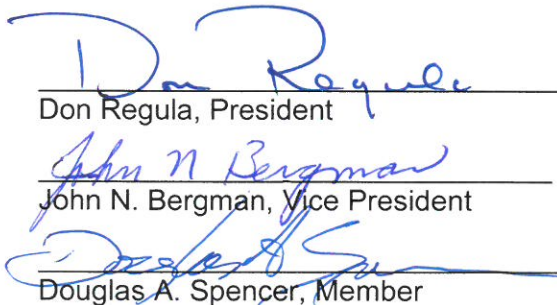 Don Regula
Don Regula, President
John N Bergman
John N. Bergman, Vice President
Douglas A S
Douglas A. Spencer, Member